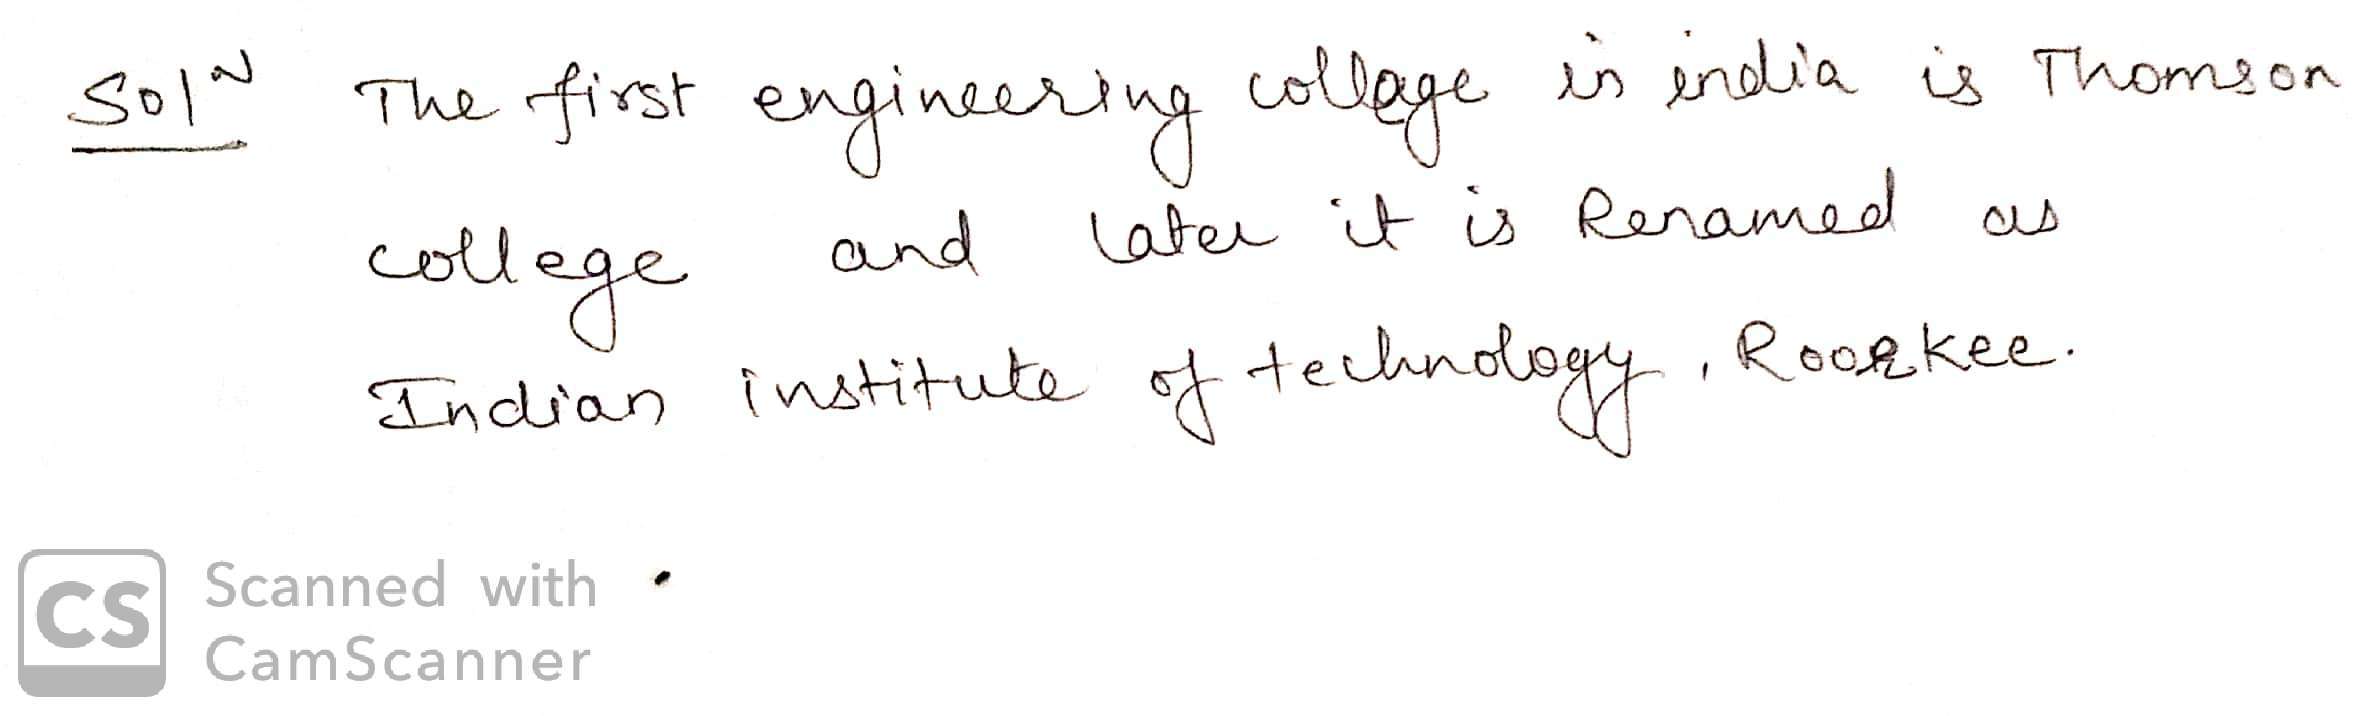 Solᴺ The first engineering collage in india is Thomson
college and later it is Renamed as
Indian institute of technology, Roorkee.
CS Scanned with
CamScanner